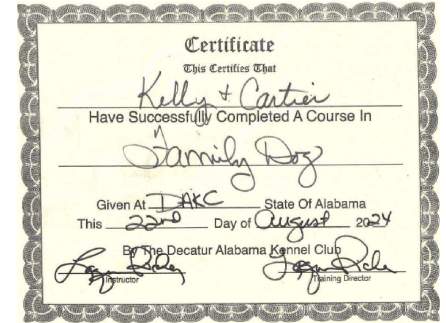 Certificate
This Certifies That
Kelly + Cartier
Have Successfully Completed A Course In
Family Dog
Given At DAKC State Of Alabama
This 22nd Day of August 2024
By The Decatur Alabama Kennel Club
Instructor Training Director